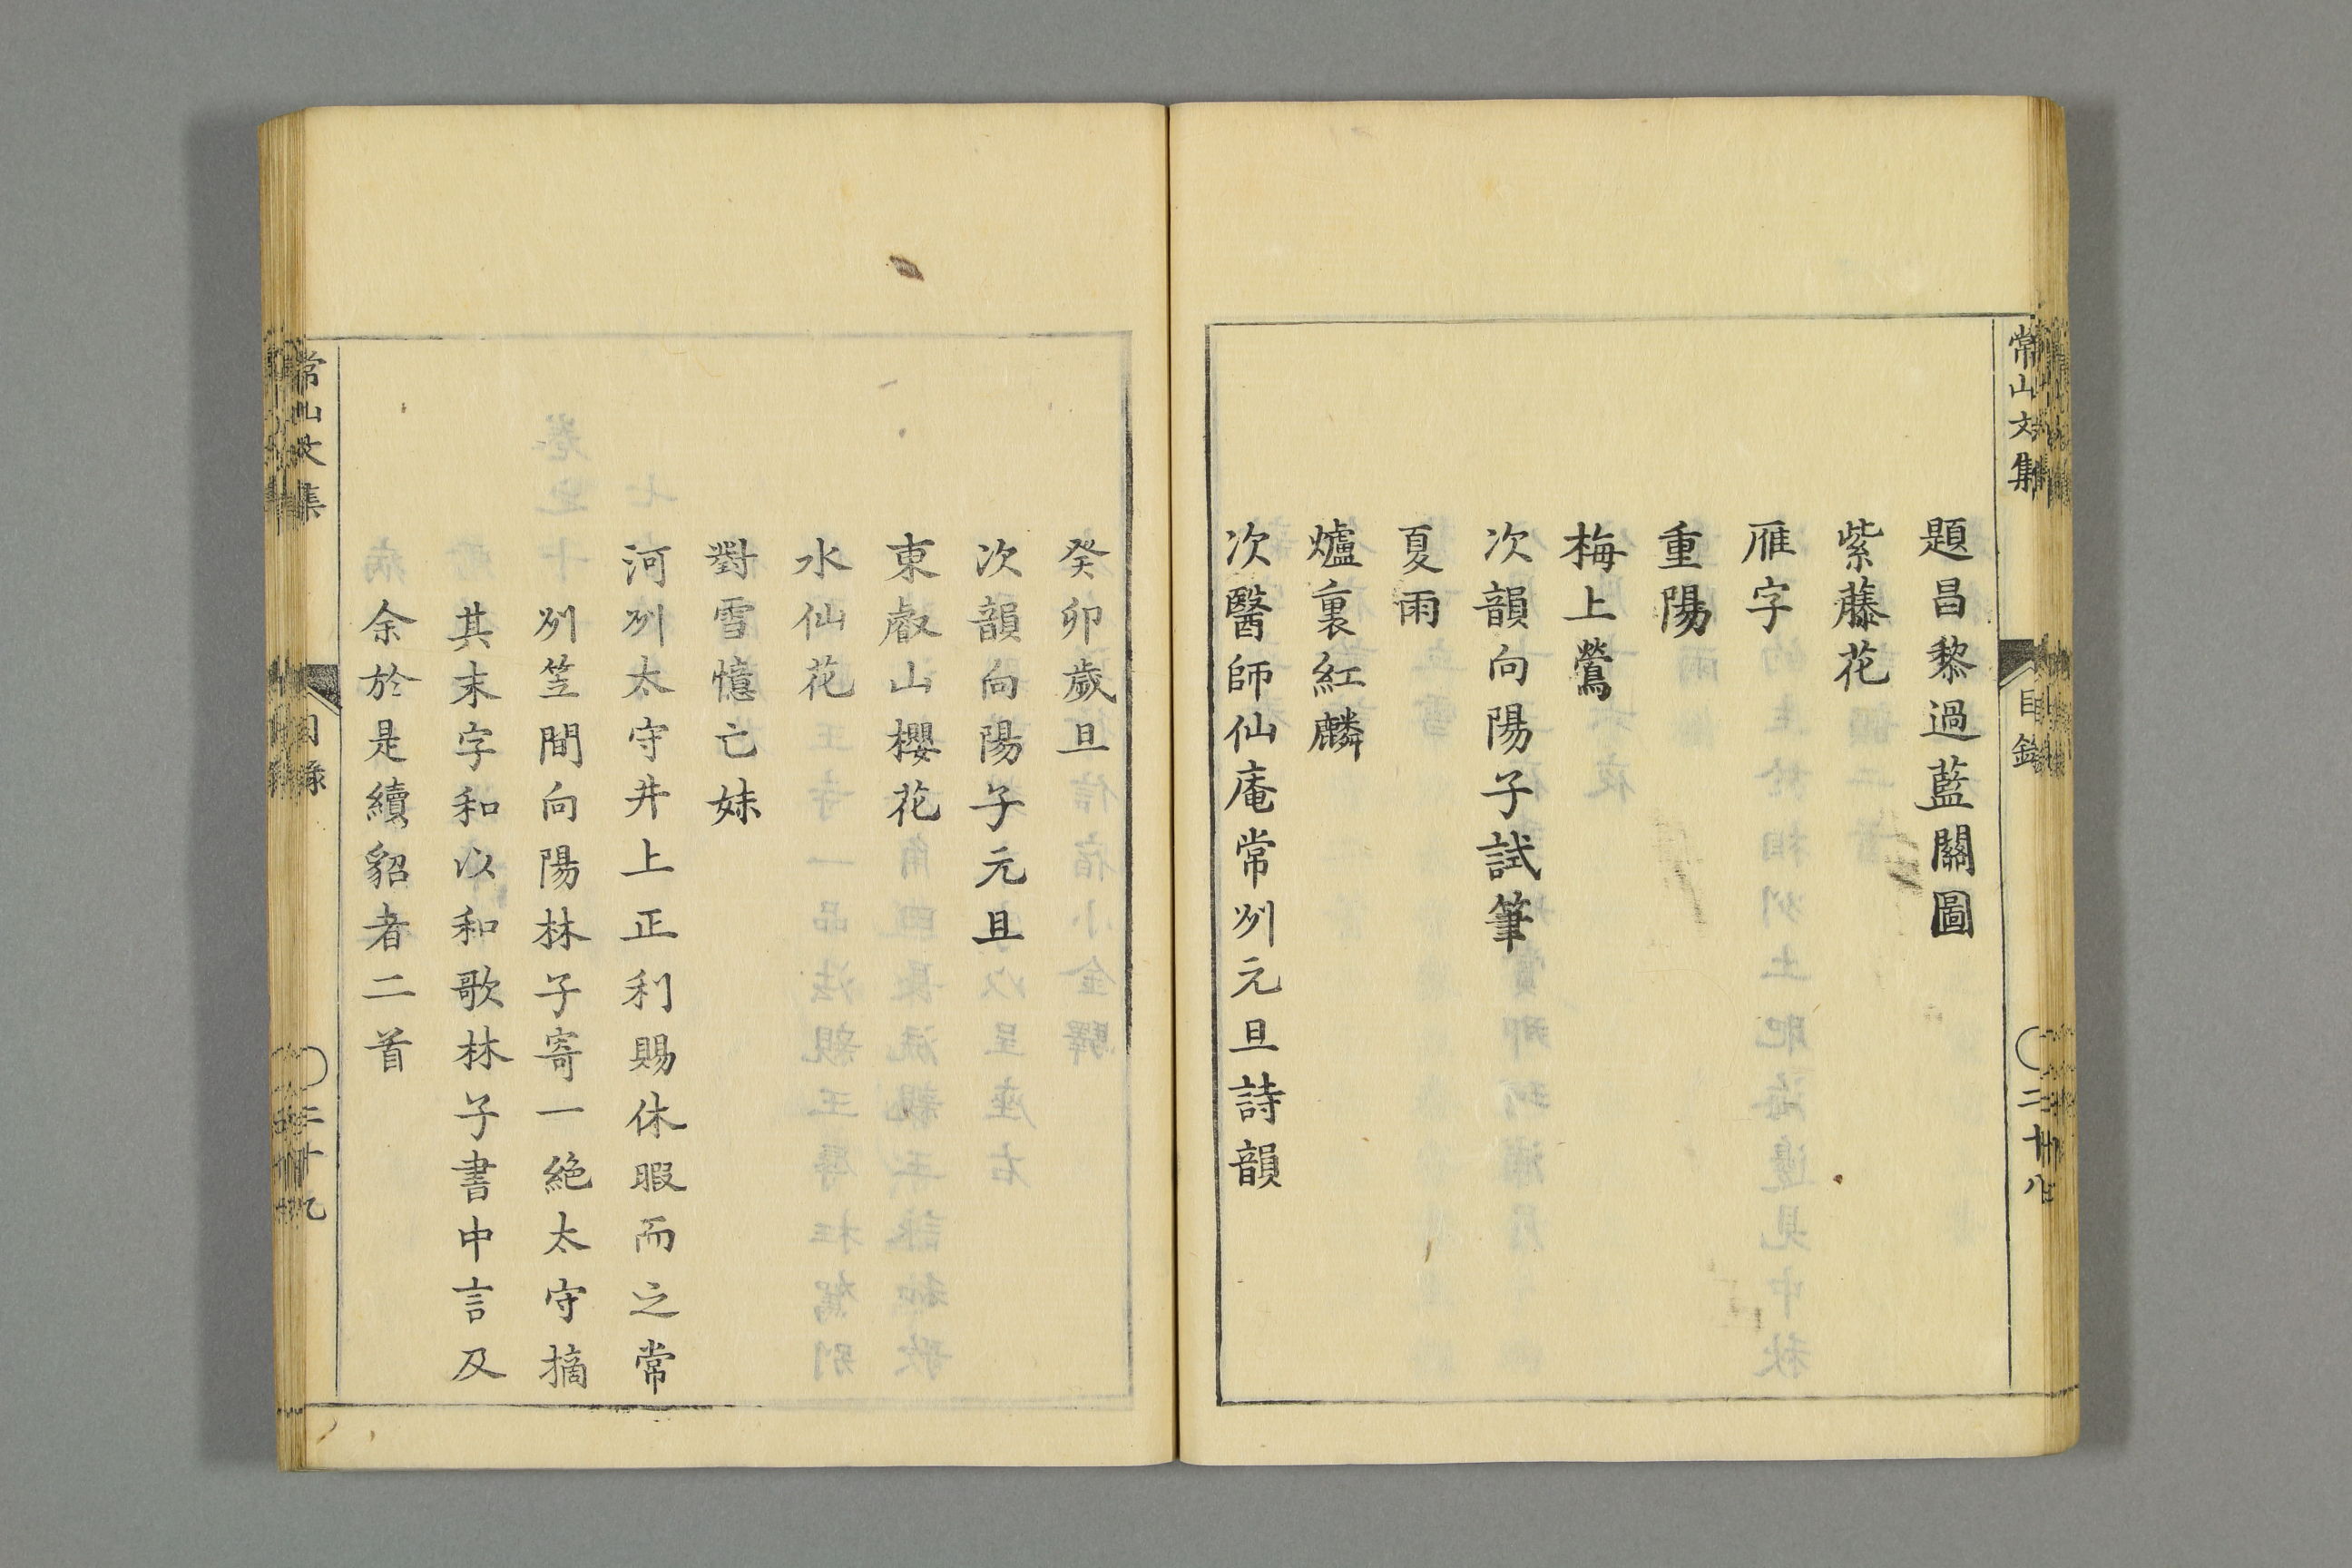 常山文集
目錄
二十八
題昌黎過藍關圖
紫藤花
雁字
重陽
梅上鶯
次韻向陽子試筆
夏雨
爐裏紅麟
次醫師仙庵常州元旦詩韻
癸卯歲旦
次韻向陽子元旦
東叡山櫻花
水仙花
對雪憶亡妹
河州太守井上正利賜休暇而之常
州笠間向陽林子寄一絶太守摘
其末字和以和歌林子書中言及
余於是續貂者二首
常山文集
目錄
二十九